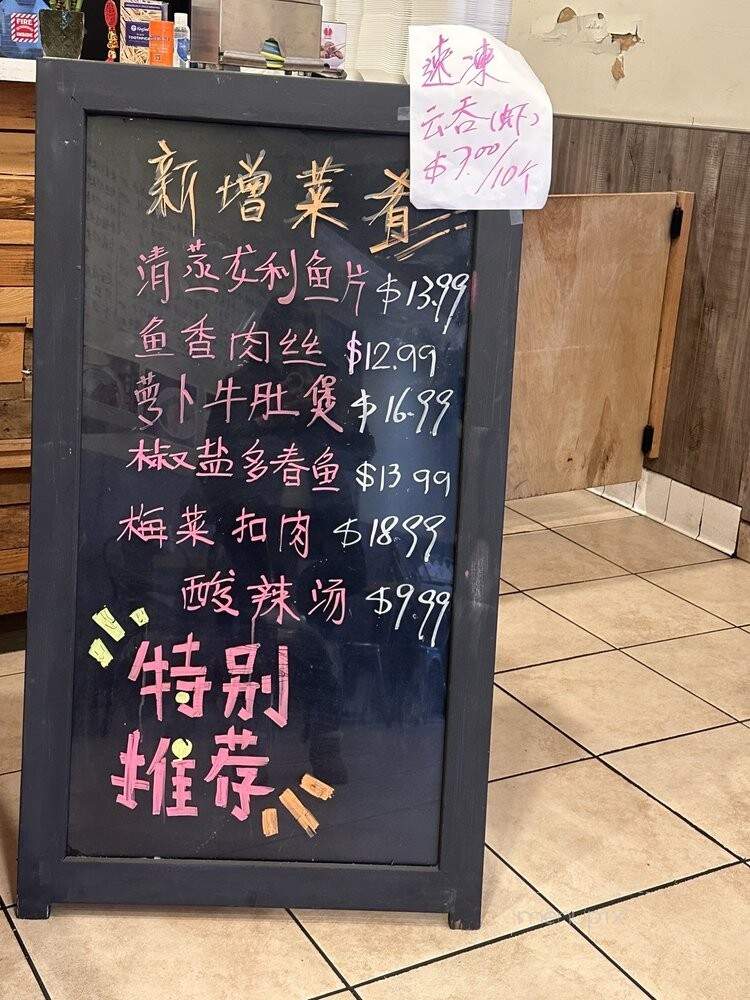 新增菜肴
清蒸龙利鱼片 $13.99
鱼香肉丝 $12.99
萝卜牛肚煲 $16.99
椒盐多春鱼 $13.99
梅菜扣肉 $18.99
酸辣汤 $9.99
特别
推荐
速冻
云吞(虾)
$7.00/10个
FIRE